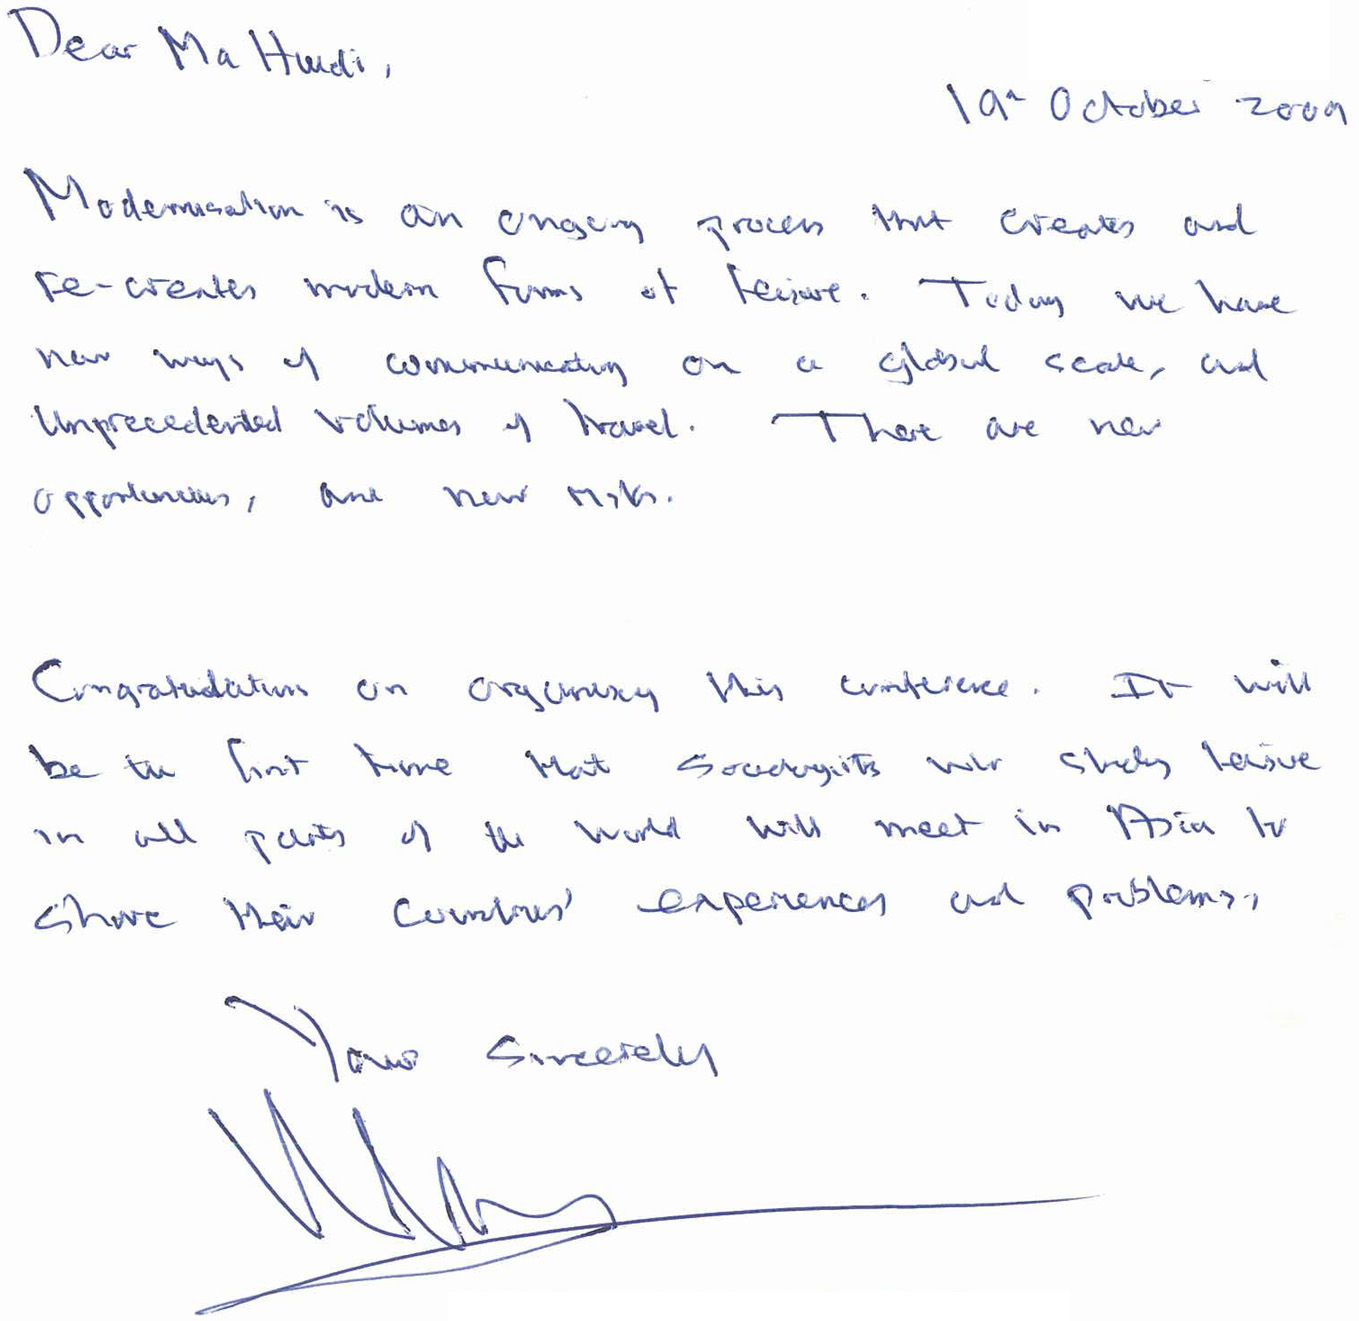 Dear Ma Huidi,
19th October 2009
Modernisation is an ongoing process that creates and
re-creates modern forms of leisure. Today we have
new ways of communicating on a global scale, and
unprecedented volumes of travel. There are new
opportunities, and new risks.
Congratulations on organising this conference. It will
be the first time that sociologists who study leisure
in all parts of the world will meet in Asia to
share their countries' experiences and problems.
Yours sincerely